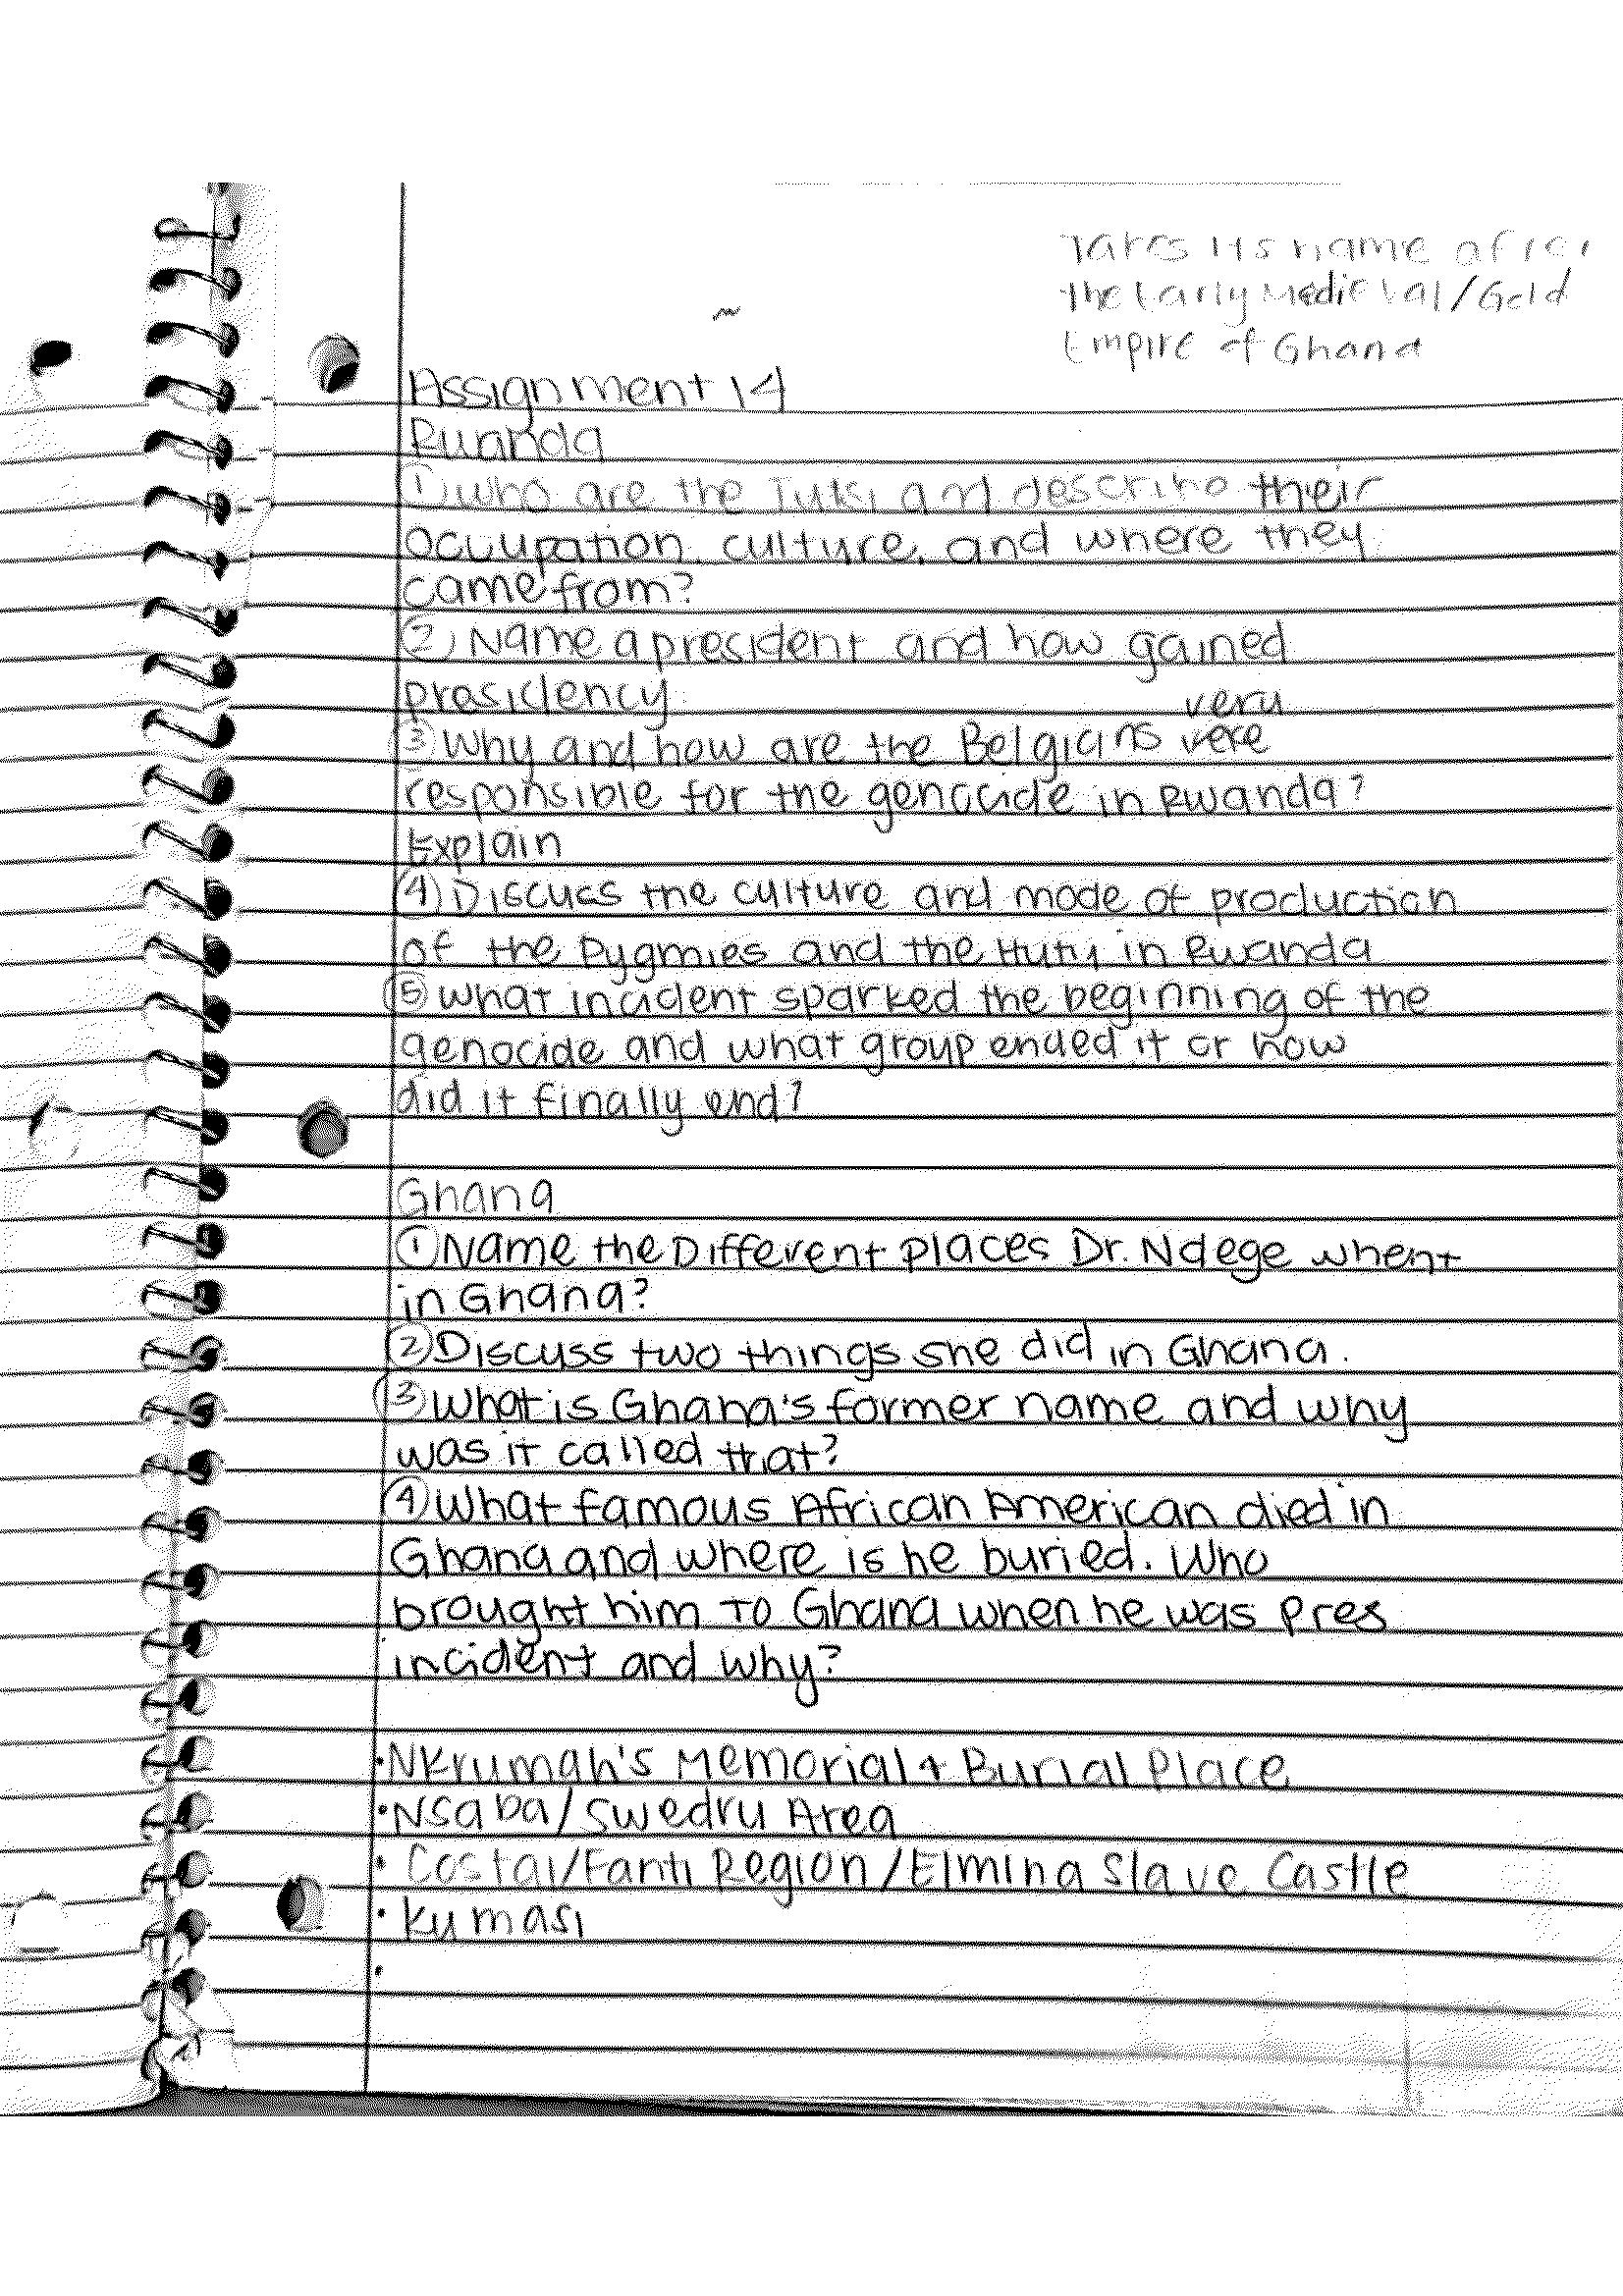 Takes its name after
the Early Medieval/Gold
Empire of Ghana
Assignment 14
Rwanda
① who are the Tutsi and describe their
occupation, culture, and where they
came from?
② Name a president and how gained
presidency
very
③ Why and how are the Belgians vere
responsible for the genocide in Rwanda?
Explain
④ Discuss the culture and mode of production
of the Pygmies and the Hutu in Rwanda
⑤ what incident sparked the beginning of the
genocide and what group ended it or how
did it finally end?
Ghana
① Name the Different places Dr. Ndege whent
in Ghana?
② Discuss two things she did in Ghana.
③ What is Ghana's former name and why
was it called that?
④ What famous African American died in
Ghana and where is he buried. Who
brought him to Ghana when he was pres
incident and why?
• Nkrumah's Memorial + Burial Place
• Nsaba/Swedru Area
• Costal/Fanti Region/Elmina Slave Castle
• Kumasi
•